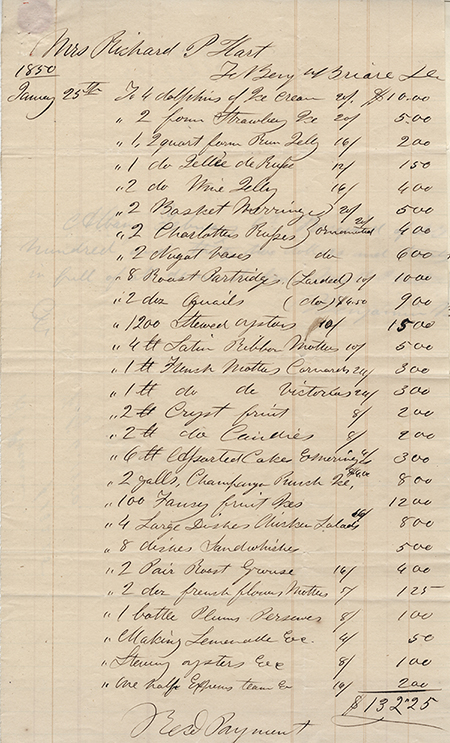 Mrs Richard P Hart
1850
To Benj
January 25th To 4 dolphins of Ice Cream 20/. $10.00
" 2 form Strawbery Ice 20/ 500
" 1, 2 quart form Rum Jelly 16/ 200
" 1 do Jellie de Russe 12/ 150
" 2 do Wine Jelly 16/ 400
" 2 Basket Merringe 20/ 500
" 2 Charlottes Russes ornamented 400
" 2 Nugat vases do 600
" 8 Roast Partridges (Larded) 10/ 1000
" 2 doz Quails (do) $4.50 900
" 1200 Stewed oysters 10/ 1500
" 4 tt Satin Ribbon Mottoes 10/ 500
" 1 tt French Mottoes 24/ 300
" 1 tt do do Victorias 24/ 300
" 2 tt Cryst fruit 8/ 200
" 2 tt do Candies 8/ 200
" 6 tt Assorted Cake & merringe 4/ 300
" 2 galls, Champange Punch Ice, $4.00 800
" 100 Fansey fruit Ices 1200
" 4 Large Dishes Chicken Salads 16/ 800
" 8 dishes Sandwhishes 500
" 2 Pair Roast Grouse 16/ 400
" 2 doz french flower Mottoes 5/ 125
" 1 bottle Plums Perserves 8/ 100
" Making Lemonade &c. 4/ 50
" Stewing oysters &c 8/ 100
" One half Expens team &c 16/ 200
$ 132.25
Recd Payment